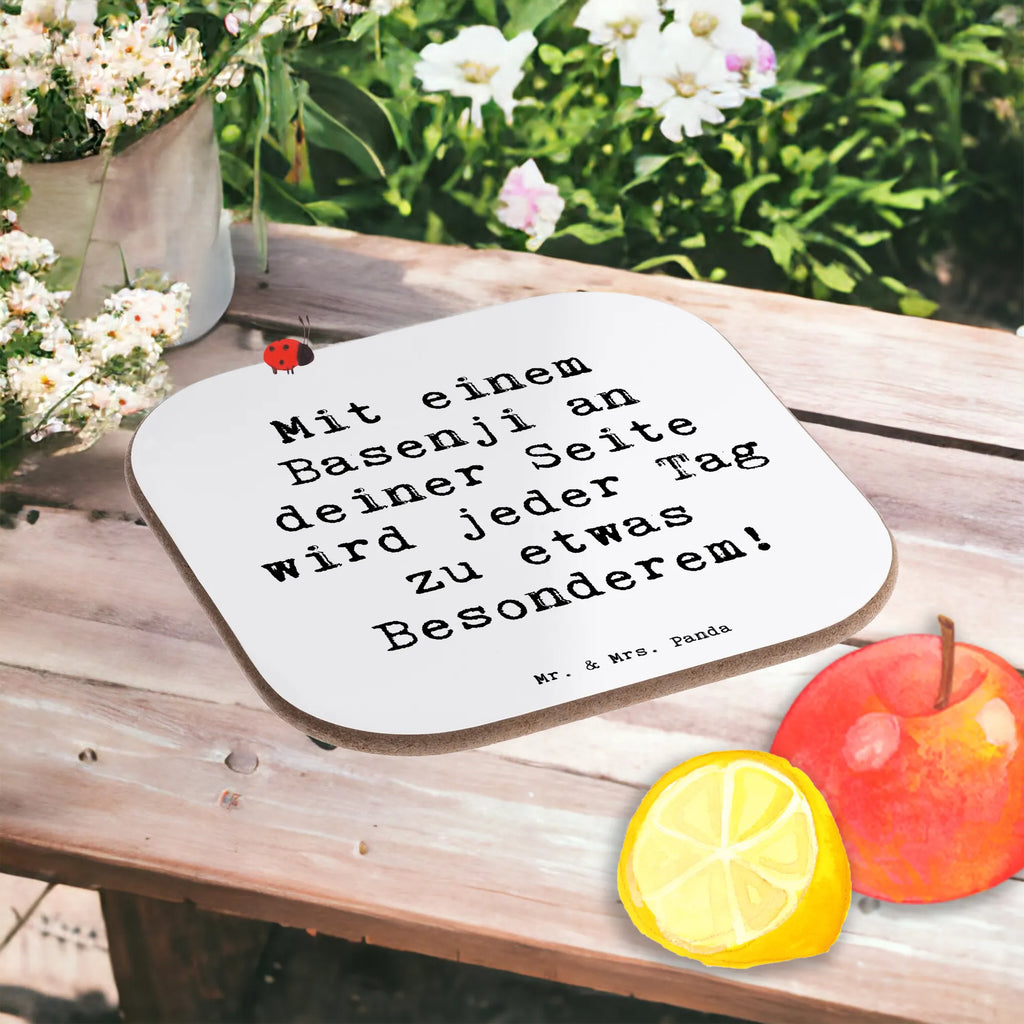 Mit einem
Basenji an
deiner Seite
wird jeder Tag
zu etwas
Besonderem!
Mr. & Mrs. Panda